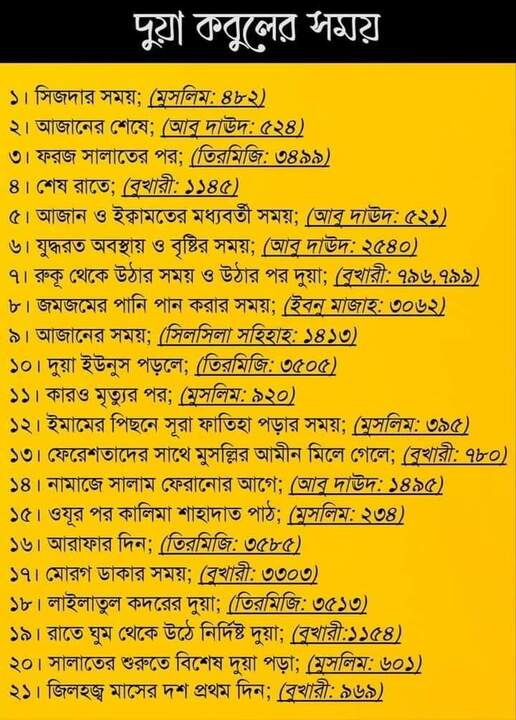 দুয়া কবুলের সময়
১। সিজদার সময়; (মুসলিম: ৪৮২)
২। আজানের শেষে; (আবু দাউদ: ৫২৪)
৩। ফরজ সালাতের পর; (তিরমিজি: ৩৪৯৯)
৪। শেষ রাতে; (বুখারী: ১১৪৫)
৫। আজান ও ইক্বামতের মধ্যবর্তী সময়; (আবু দাউদ: ৫২১)
৬। যুদ্ধরত অবস্থায় ও বৃষ্টির সময়; (আবু দাউদ: ২৫৪০)
৭। রুকূ থেকে উঠার সময় ও উঠার পর দুয়া; (বুখারী: ৭৯৬,৭৯৯)
৮। জমজমের পানি পান করার সময়; (ইবনু মাজাহ: ৩০৬২)
৯। আজানের সময়; (সিলসিলা সহিহাহ: ১৪১৩)
১০। দুয়া ইউনুস পড়লে; (তিরমিজি: ৩৫০৫)
১১। কারও মৃত্যুর পর; (মুসলিম: ৯২০)
১২। ইমামের পিছনে সূরা ফাতিহা পড়ার সময়; (মুসলিম: ৩৯৫)
১৩। ফেরেশতাদের সাথে মুসল্লির আমীন মিলে গেলে; (বুখারী: ৭৮০)
১৪। নামাজে সালাম ফেরানোর আগে; (আবু দাউদ: ১৪৯৫)
১৫। ওযূর পর কালিমা শাহাদাত পাঠ; (মুসলিম: ২৩৪)
১৬। আরাফার দিন; (তিরমিজি: ৩৫৮৫)
১৭। মোরগ ডাকার সময়; (বুখারী: ৩৩০৩)
১৮। লাইলাতুল কদরের দুয়া; (তিরমিজি: ৩৫১৩)
১৯। রাতে ঘুম থেকে উঠে নির্দিষ্ট দুয়া; (বুখারী:১১৫৪)
২০। সালাতের শুরুতে বিশেষ দুয়া পড়া; (মুসলিম: ৬০১)
২১। জিলহজ্ব মাসের দশ প্রথম দিন; (বুখারী: ৯৬৯)